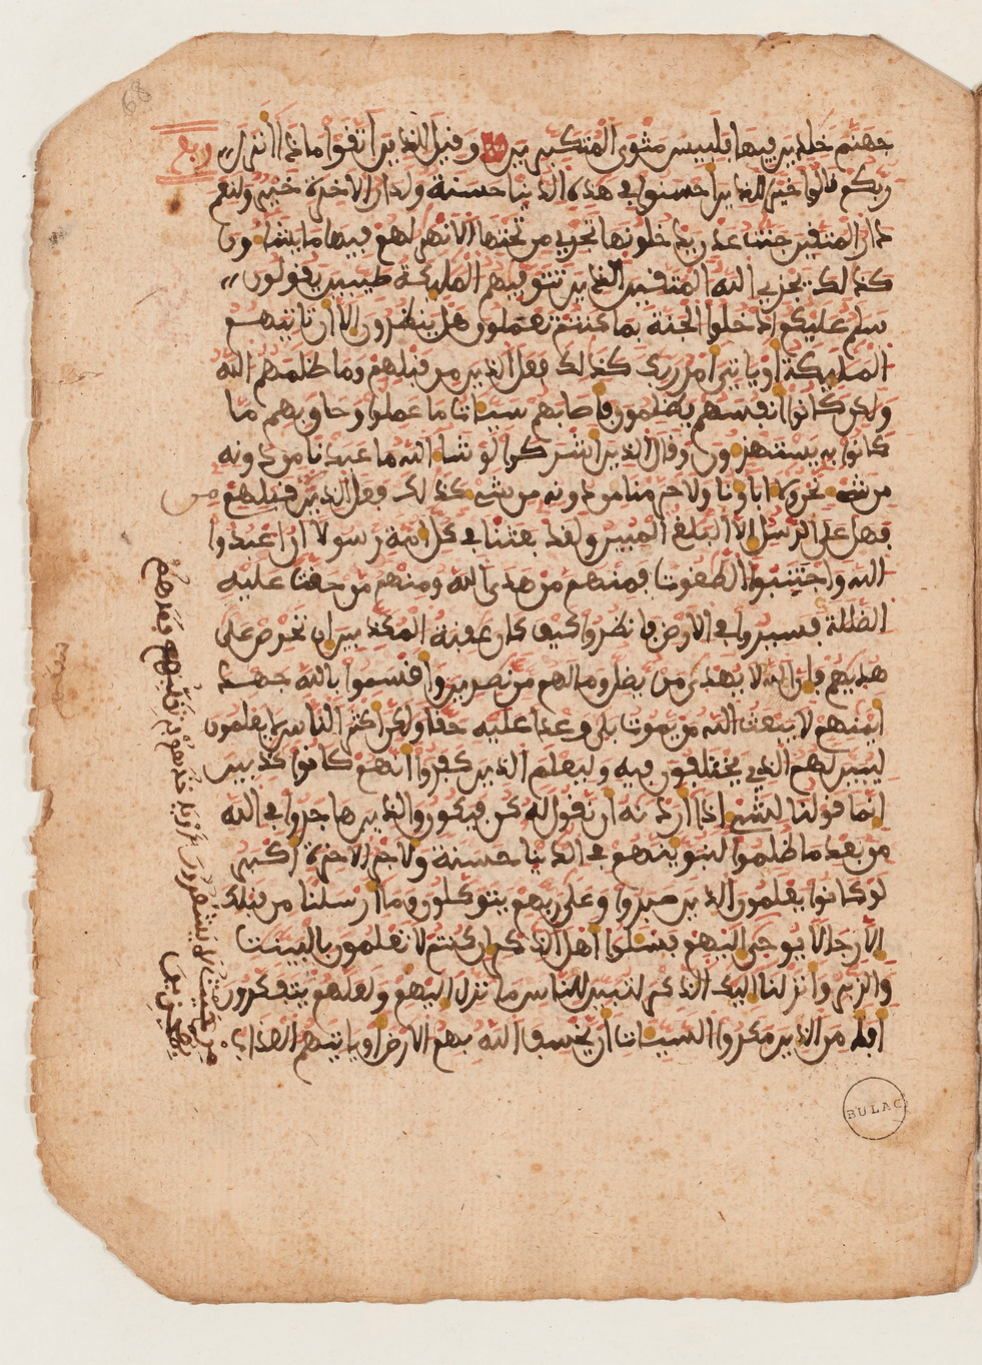 68
ربع
جهنم خلدين فيها فلبيس مثوى المتكبرين وقيل للذين اتقوا ماذا انزل
ربكم قالوا خيرا للذين احسنوا في هذه الدنيا حسنة ولدار الاخرة خير ولنعم
دار المتقين جنت عدن يدخلونها تجري من تحتها الانهر لهم فيها ما يشاءون
كذلك يجزي الله المتقين الذين تتوفيهم المليكة طيبين يقولون
سلم عليكم ادخلوا الجنة بما كنتم تعملون هل ينظرون الا ان تاتيهم
المليكة او ياتي امر ربك كذلك فعل الذين من قبلهم وما ظلمهم الله
ولكن كانوا انفسهم يظلمون فاصابهم سيات ما عملوا وحاق بهم ما
كانوا به يستهزءون وقال الذين اشركوا لو شاء الله ما عبدنا من دونه
من شيء نحن ولا اباونا ولا حرمنا من دونه من شيء كذلك فعل الذين من قبلهم
فهل على الرسل الا البلغ المبين ولقد بعثنا في كل امة رسولا ان اعبدوا
الله واجتنبوا الطغوت فمنهم من هدى الله ومنهم من حقت عليه
الضللة فسيروا في الارض فانظروا كيف كان عقبة المكذبين ان تحرص على
هديهم فان الله لا يهدى من يضل وما لهم من نصرين واقسموا بالله جهد
ايمنهم لا يبعث الله من يموت بلى وعدا عليه حقا ولكن اكثر الناس لا يعلمون
ليبين لهم الذي يختلفون فيه وليعلم الذين كفروا انهم كانوا كذبين
انما قولنا لشيء اذا اردنه ان نقول له كن فيكون والذين هاجروا في الله
من بعد ما ظلموا لنبوينهم في الدنيا حسنة ولاجر الاخرة اكبر
لو كانوا يعلمون الذين صبروا وعلى ربهم يتوكلون وما ارسلنا من قبلك
الا رجالا يوحى اليهم فسلوا اهل الذكر ان كنتم لا تعلمون بالبينت
والزبر وانزلنا اليك الذكر لتبين للناس ما نزل اليهم ولعلهم يتفكرون
افامن الذين مكروا السيات ان يخسف الله بهم الارض او ياتيهم العذاب
من حيث لا يشعرون او ياخذهم في تقلبهم فما هم
بمعجزين
BULAC